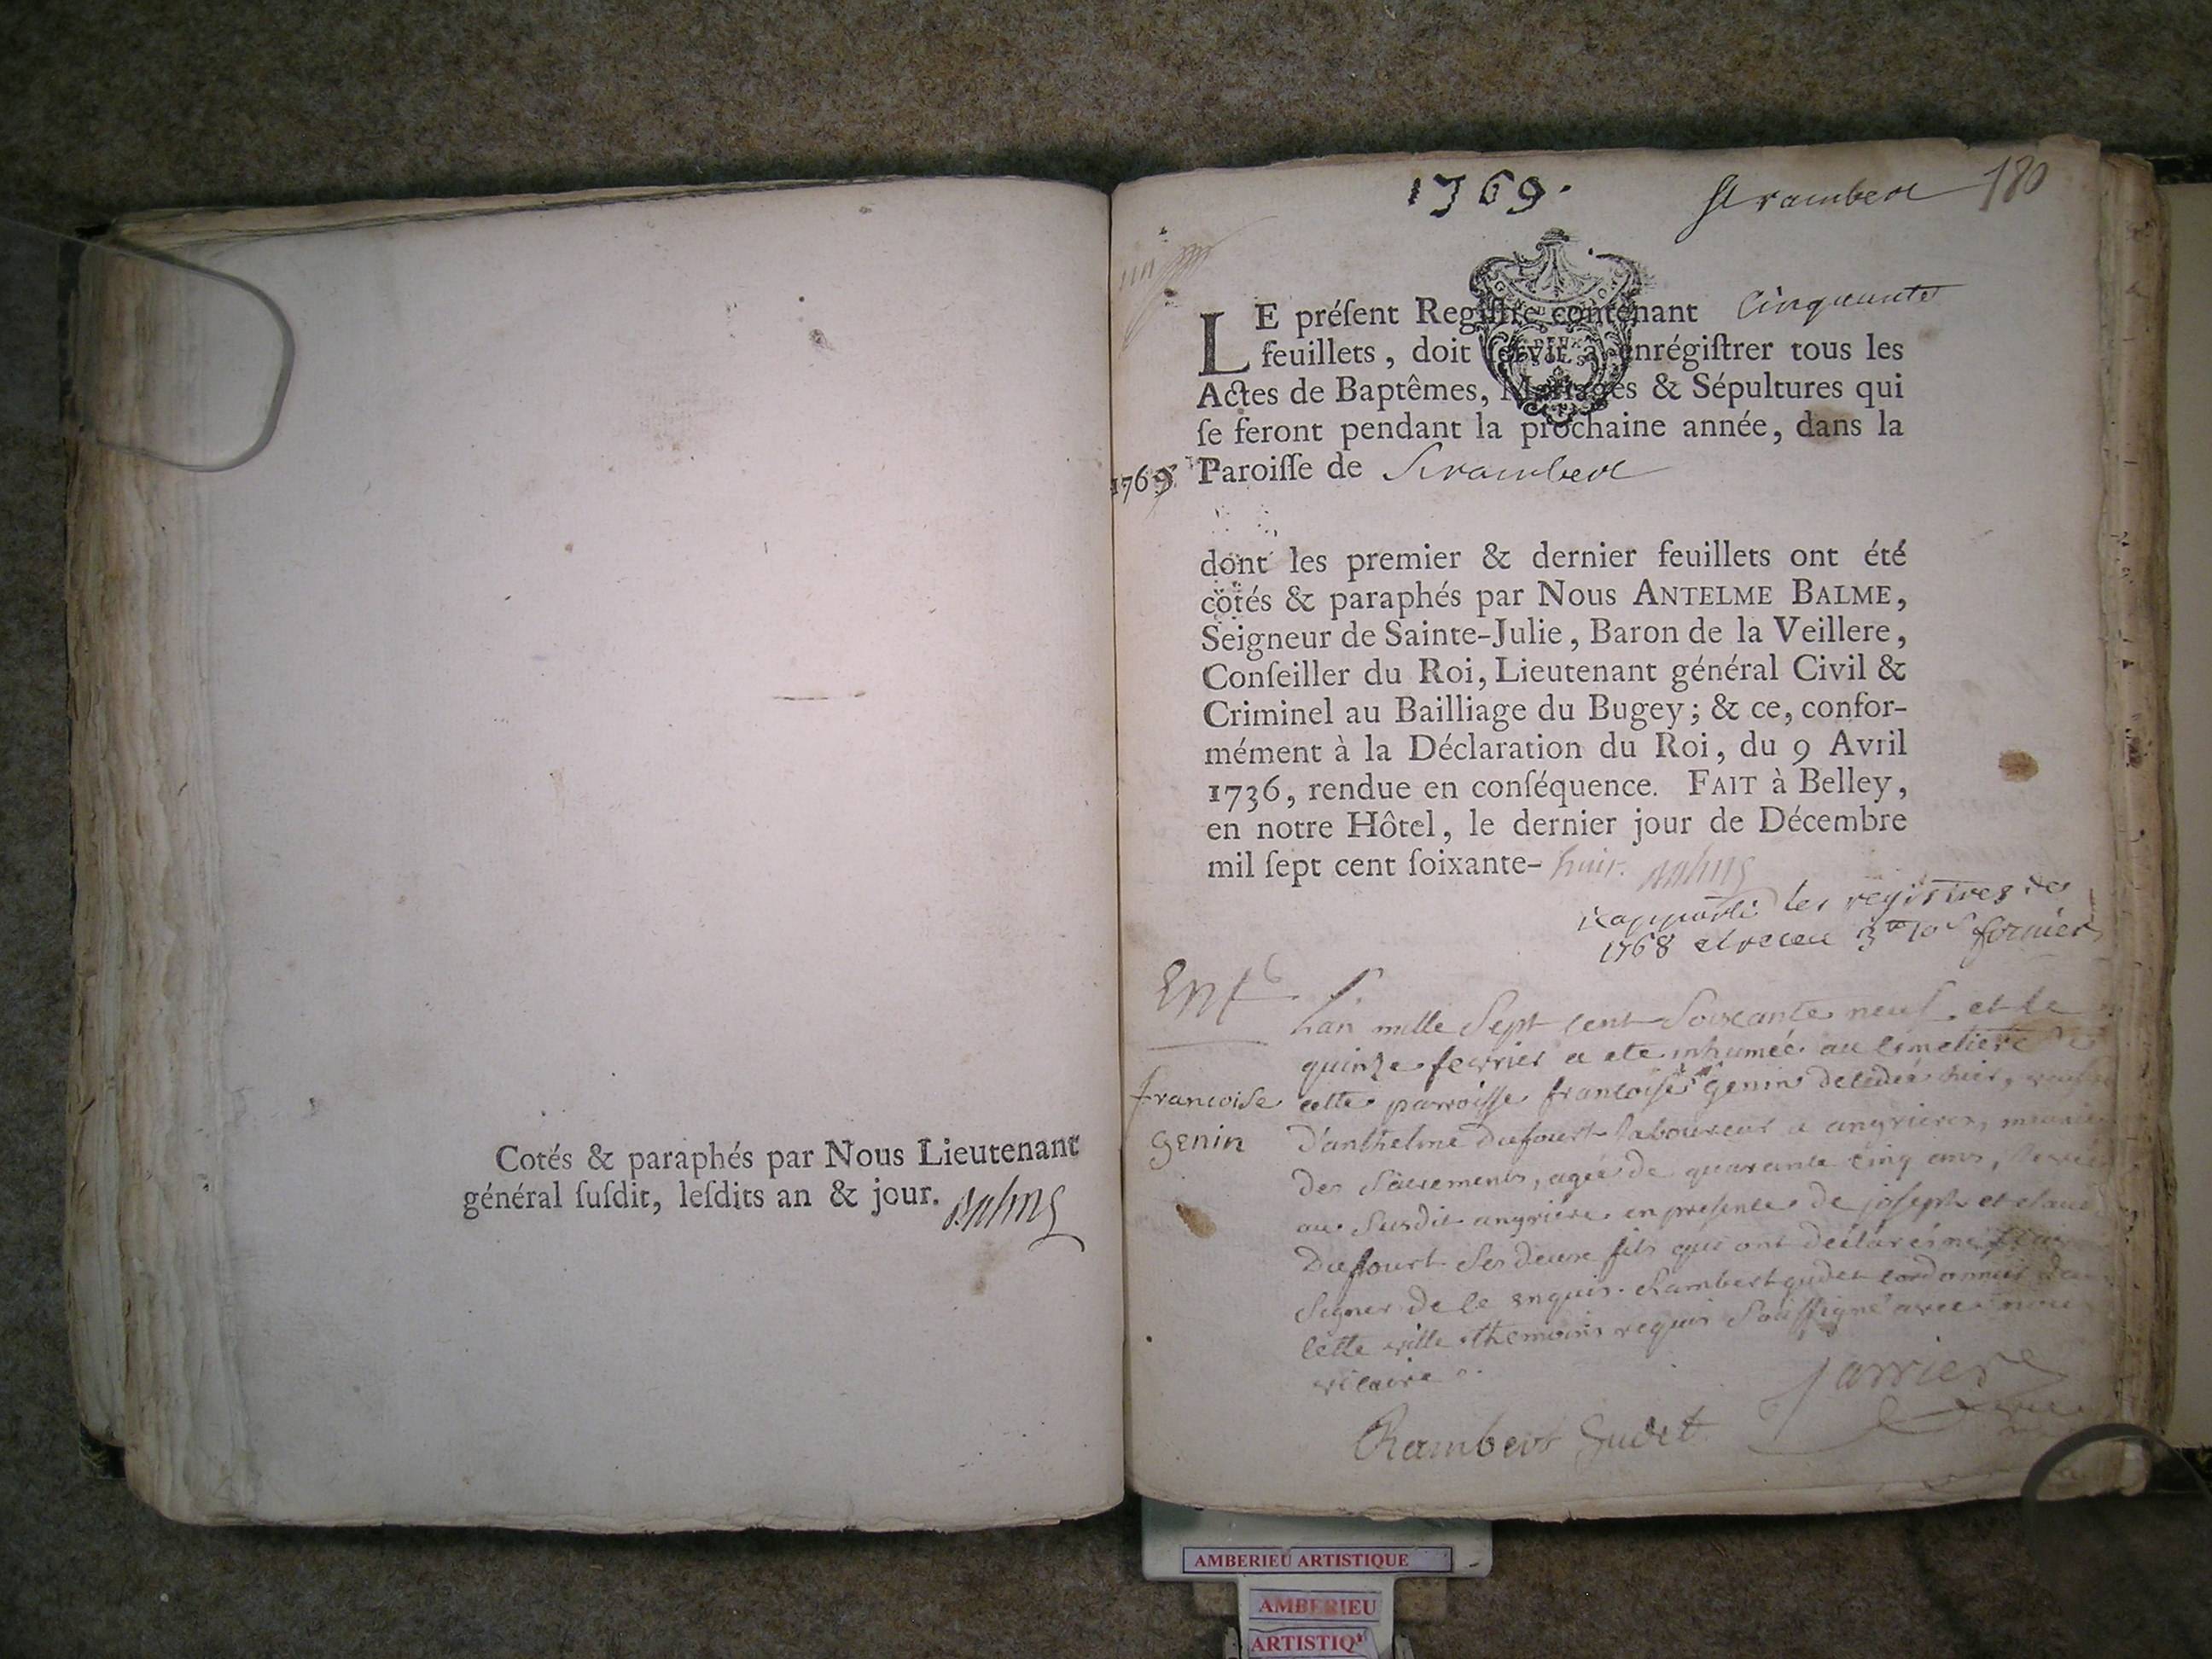 Cotés & paraphés par Nous Lieutenant
général ſuſdit, leſdits an & jour. Balme
1769.
St rambert 180
LE préſent Regiſtre contenant Cinquante
feuillets, doit ſervir à enrégiſtrer tous les
Actes de Baptêmes, Mariages & Sépultures qui
ſe feront pendant la prochaine année, dans la
1769 Paroiſſe de St rambert
dont les premier & dernier feuillets ont été
cotés & paraphés par Nous ANTELME BALME,
Seigneur de Sainte-Julie, Baron de la Veillere,
Conſeiller du Roi, Lieutenant général Civil &
Criminel au Bailliage du Bugey; & ce, confor-
mément à la Déclaration du Roi, du 9 Avril
1736, rendue en conſéquence. FAIT à Belley,
en notre Hôtel, le dernier jour de Décembre
mil ſept cent ſoixante- huit. Balme
rapporté les registres de
1768 et receu
Ent
francoise
genin
Lan mille Sept cent Soixante neuf et le
quinze fevrier a ete inhumée au cimetiere de
cette parroisse francoise genin decedée hier,
d'anthelme Dufourt laboureur a angrieres,
des Sacrements, agée de quarante cinq ans,
au Susdit angriere en presence de joseph et claude
Dufourt Ses deux fils qui ont déclaré ne
Signer de ce enquis. Rambert gudet cordonnier
cette ville themoins requis Soussigné avec nous
vicaire
Rambert Gudet
Jarrier
AMBERIEU ARTISTIQUE
AMBERIEU
ARTISTIQ